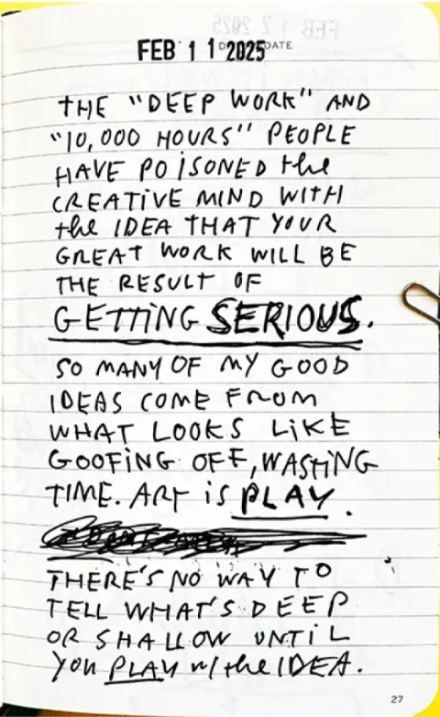 FEB 1 1 2025
DATE
THE "DEEP WORK" AND
"10,000 HOURS" PEOPLE
HAVE POISONED the
CREATIVE MIND WITH
the IDEA THAT YOUR
GREAT WORK WILL BE
THE RESULT OF
GETTING SERIOUS.
SO MANY OF MY GOOD
IDEAS COME FROM
WHAT LOOKS LIKE
GOOFING OFF, WASTING
TIME. ART IS PLAY.
THERE'S NO WAY TO
TELL WHAT'S DEEP
OR SHALLOW UNTIL
YOU PLAY w/ the IDEA.
27